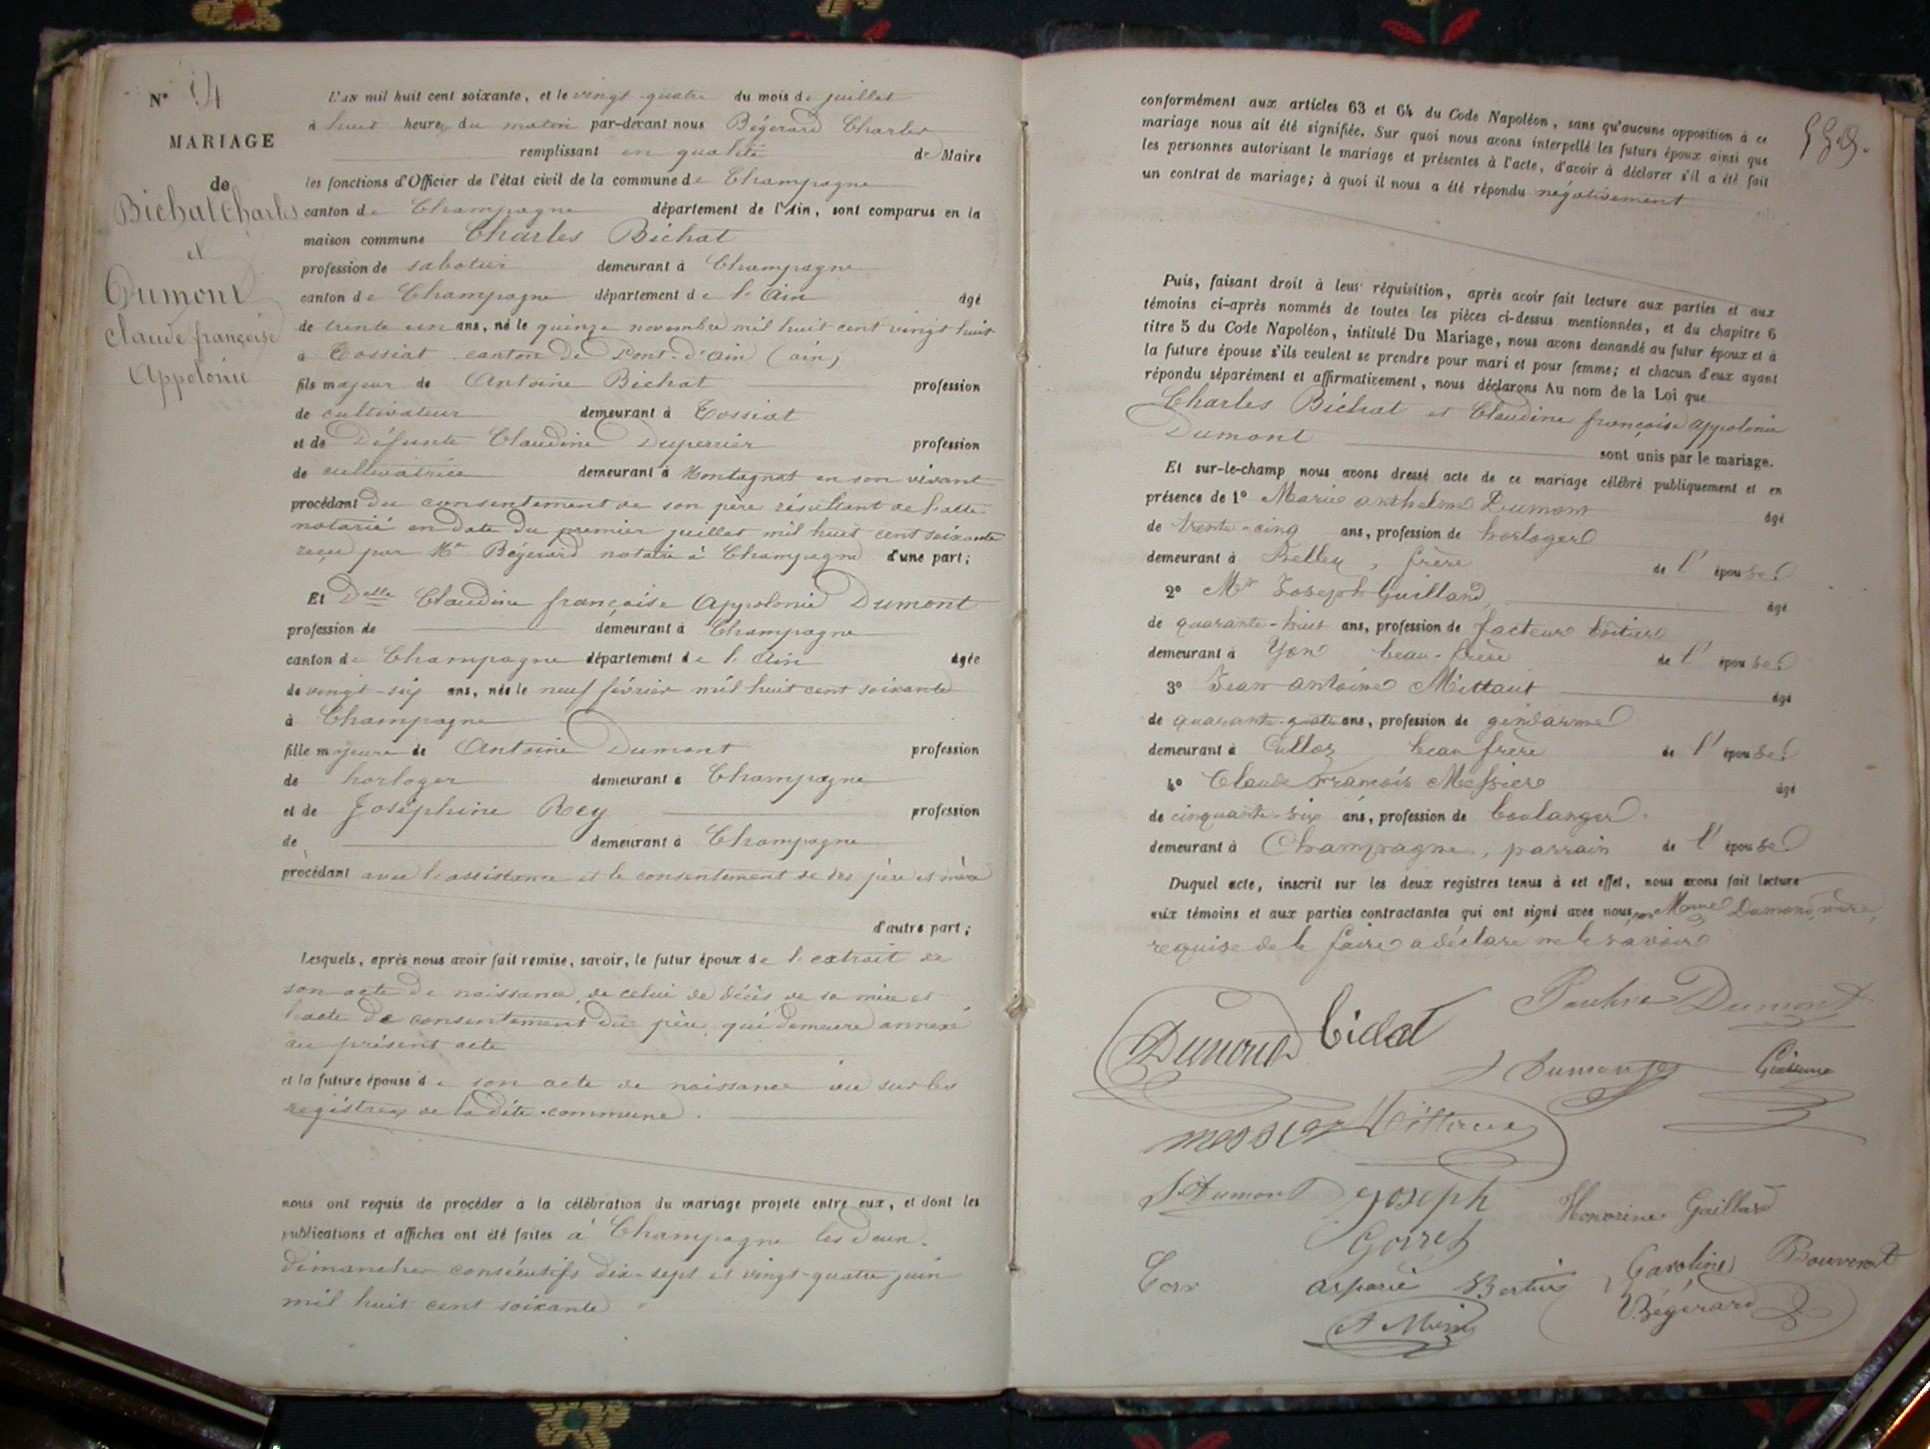 N° 
MARIAGE
de
Bichat Charles
et
Dumont
Claude françoise
Appolonie
L'AN mil huit cent soixante, et le vingt quatre du mois de juillet
à huit heures du matin par-devant nous Bégerard Charles
remplissant en qualité de Maire
les fonctions d'Officier de l'état civil de la commune de Champagne
canton de Champagne département de l'Ain, sont comparus en la
maison commune Charles Bichat
profession de sabotier demeurant à Champagne
canton de Champagne département de l'Ain âgé
de trente un ans, né le quinze novembre mil huit cent vingt huit
à Tossiat canton de Pont-d'Ain (ain)
fils majeur de Antoine Bichat profession
de cultivateur demeurant à Tossiat
et de Défunte Claudine Duperrier profession
de cultivatrice demeurant à Montagnat en son vivant
procédant du consentement de son père résultant de l'acte
notarié en date du premier juillet mil huit cent soixante
reçu par Me Bégerard notaire à Champagne d'une part;
Et Delle Claudine françoise Appolonie Dumont
profession de demeurant à Champagne
canton de Champagne département de l'Ain âgée
de vingt-six ans, née le neuf février mil huit cent soixante
à Champagne
fille majeure de Antoine Dumont profession
de horloger demeurant à Champagne
et de Joséphine Rey profession
de demeurant à Champagne
procédant avec l'assistance et le consentement de ses père et mère
d'autre part;
Lesquels, après nous avoir fait remise, savoir, le futur époux de l'extrait de
son acte de naissance, de celui de décès de sa mère et
l'acte de consentement du père, qui demeure annexé
au présent acte
et la future épouse de son acte de naissance vu sur les
registres de la dite commune.
nous ont requis de procéder à la célébration du mariage projeté entre eux, et dont les
publications et affiches ont été faites à Champagne les deux
dimanches consécutifs dix-sept et vingt-quatre juin
mil huit cent soixante
conformément aux articles 63 et 64 du Code Napoléon, sans qu'aucune opposition à ce
mariage nous ait été signifiée. Sur quoi nous avons interpellé les futurs époux ainsi que
les personnes autorisant le mariage et présentes à l'acte, d'avoir à déclarer s'il a été fait
un contrat de mariage; à quoi il nous a été répondu négativement
Puis, faisant droit à leur réquisition, après avoir fait lecture aux parties et aux
témoins ci-après nommés de toutes les pièces ci-dessus mentionnées, et du chapitre 6
titre 5 du Code Napoléon, intitulé Du Mariage, nous avons demandé au futur époux et à
la future épouse s'ils veulent se prendre pour mari et pour femme; et chacun d'eux ayant
répondu séparément et affirmativement, nous déclarons Au nom de la Loi que
Charles Bichat et Claudine françoise Appolonie
Dumont sont unis par le mariage.
Et sur-le-champ nous avons dressé acte de ce mariage célébré publiquement et en
présence de 1° Marie Anthelme Dumont âgé
de trente-cinq ans, profession de horloger
demeurant à Belley, frère de l'épouse
2° Mr Joseph Guilland âgé
de quarante-huit ans, profession de facteur
demeurant à Yon beau-frère de l'épouse
3° Jean Antoine Mittaut âgé
de quarante-quatre ans, profession de gendarme
demeurant à Culloz beau frère de l'épouse
4° Claude François Messier âgé
de cinquante-six ans, profession de boulanger
demeurant à Champagne, parrain de l'épouse
Duquel acte, inscrit sur les deux registres tenus à cet effet, nous avons fait lecture
aux témoins et aux parties contractantes qui ont signé avec nous, Dumont, mère,
requise de le faire a déclaré ne le savoir
Dumont Bichat Dumont
Dumont
messier Mittaut
Dumont joseph Honorine Guilland
Goiret
aspasie Bertin Caroline Bouveret
Bégerard